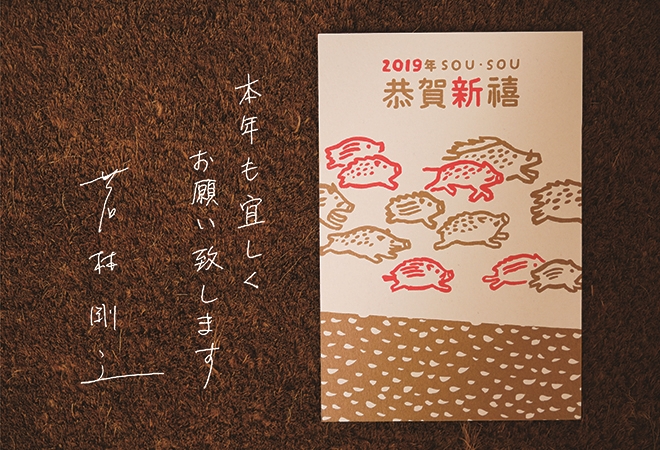 本年も宜しく
お願い致します
若林剛之
2019年 SOU・SOU
恭賀新禧